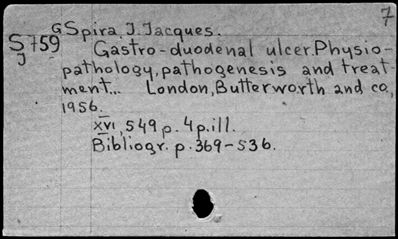 7
GSpira, J. Jacques.
S759
J
Gastro-duodenal ulcer. Physio-
pathology, pathogenesis and treat-
ment... London, Butterworth and co,
1956.
XVI, 549 p. 4 p. ill.
Bibliogr. p. 369-536.